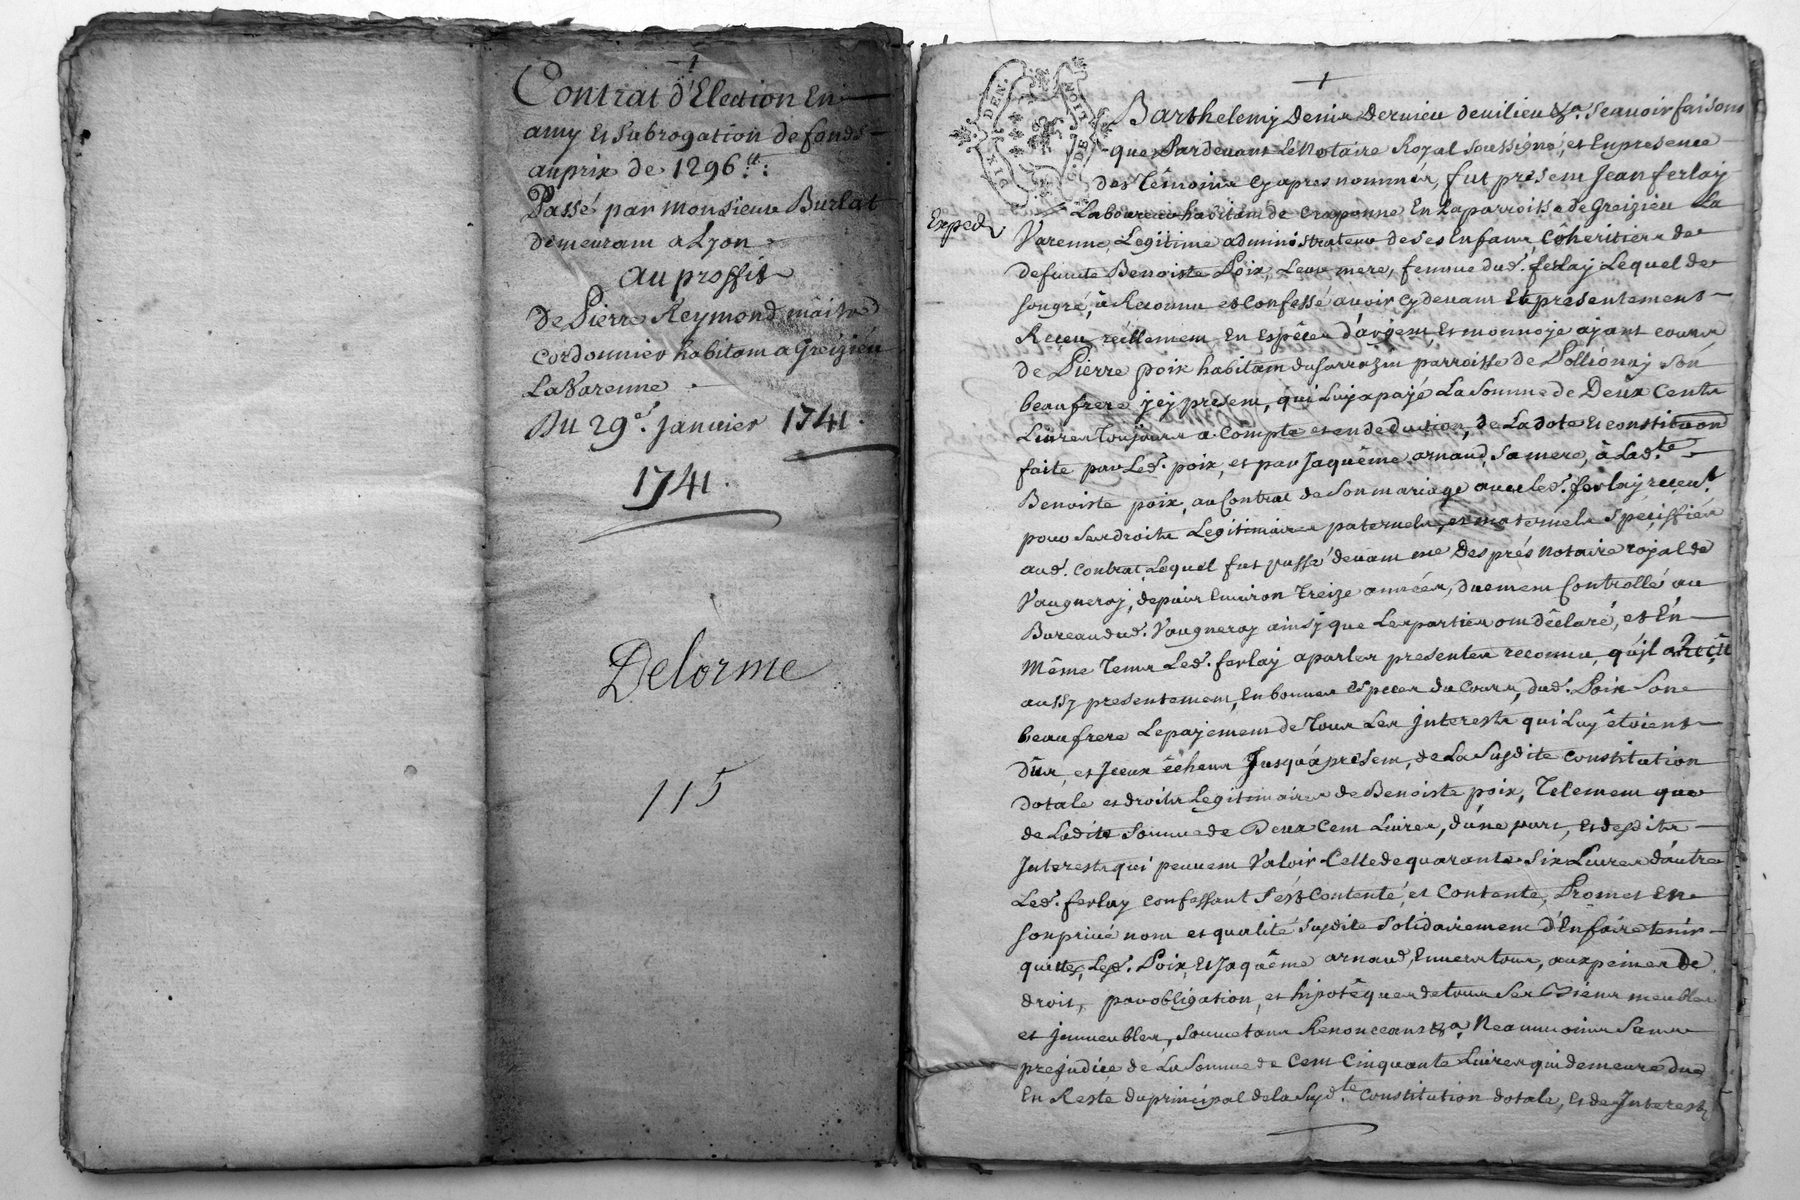 Contrat d'Election En
amy et subrogation de fonds
au prix de 1296 ₶:
Passé par Monsieur Burlat
demeurant a Lyon
au proffit
de Pierre Reymond maitre
Cordonnier habitant a Greizieu
La Varenne
Du 29e. Janvier 1741.
1741.
Delorme
115
DIX DEN. G. DE LION
Barthelemy Denis Dervieu de vilieu &a. Scavoir faisons
que Pardevant Le Notaire Royal soussigné, et En presence
des Têmoins cy apres nommés, fut present Jean ferlay
Laboureur habitant de Craponne En La parroisse de Greizieu La
Exped
Varenne, Legitime administrateur de ses Enfans, Côheritiers de
defunte Benoiste Poix, Leur mere, femme dud. ferlay Lequel de
son gré, a Reconnu et Confessé avoir cy devant Et presentement
Receu reêllement En Espêces d'argent, et monnoye ayant cours
de Pierre poix habitant du Sarrazin parroisse de Pollionay son
beaufrere jcy present, qui Luy a payé La Somme de Deux Cents
Livres Toujours a Cômpte et en deduction, de La dote et constitution
faite par Led. poix, et par Jaquême arnaud, sa mere, â Lad.te
Benoiste poix, au Contrat de son mariage avec led. ferlay receu
pour ses droits Legitimaires paternels, et maternels speciffiés
aud. contrat, Lequel fut passé devant me Després Notaire royal de
Vaugneray, depuis Environ Treize années, duement Controllé au
Bureau dud. Vaugneray ainsy que Les parties ont dêclaré, et En
Même Tems Led. ferlay a par les presentes reconnu, qu'jl a Reçû
aussy presentement, En bonnes Especes du Cours, dud. Poix Son
beaufrere Le payement de Tous Les jnterests qui Luy êtoient
dûs, et jceux êcheus Jusquâ present, de La Susdite constitution
dotale et droits Legitimaires de Benoiste poix, Telement que
de Ladite Somme de Deux Cent Livres, d'une part, et desdits
Jnterests qui peuvent Valoir Celle de quarante Six Livres d'autre
Led. ferlay confessant s'est Contenté, et Contente, Promet En
son privé nom et qualité Susdite Solidairement d'En faire tenir
quittes, Led. Poix Et Jaquême arnaud, Envers tous, aux peines De
droit, par obligation, et hipotêques de tous Ses Biens meubles
et jmmeubles, Soumetans Renonceans &a. Neanmoins Sans
prejudice de La Somme de Cent Cinquante Livres qui demeure dûe
En Reste du principal de la Susd.te Constitution dotale, et de Jnterests